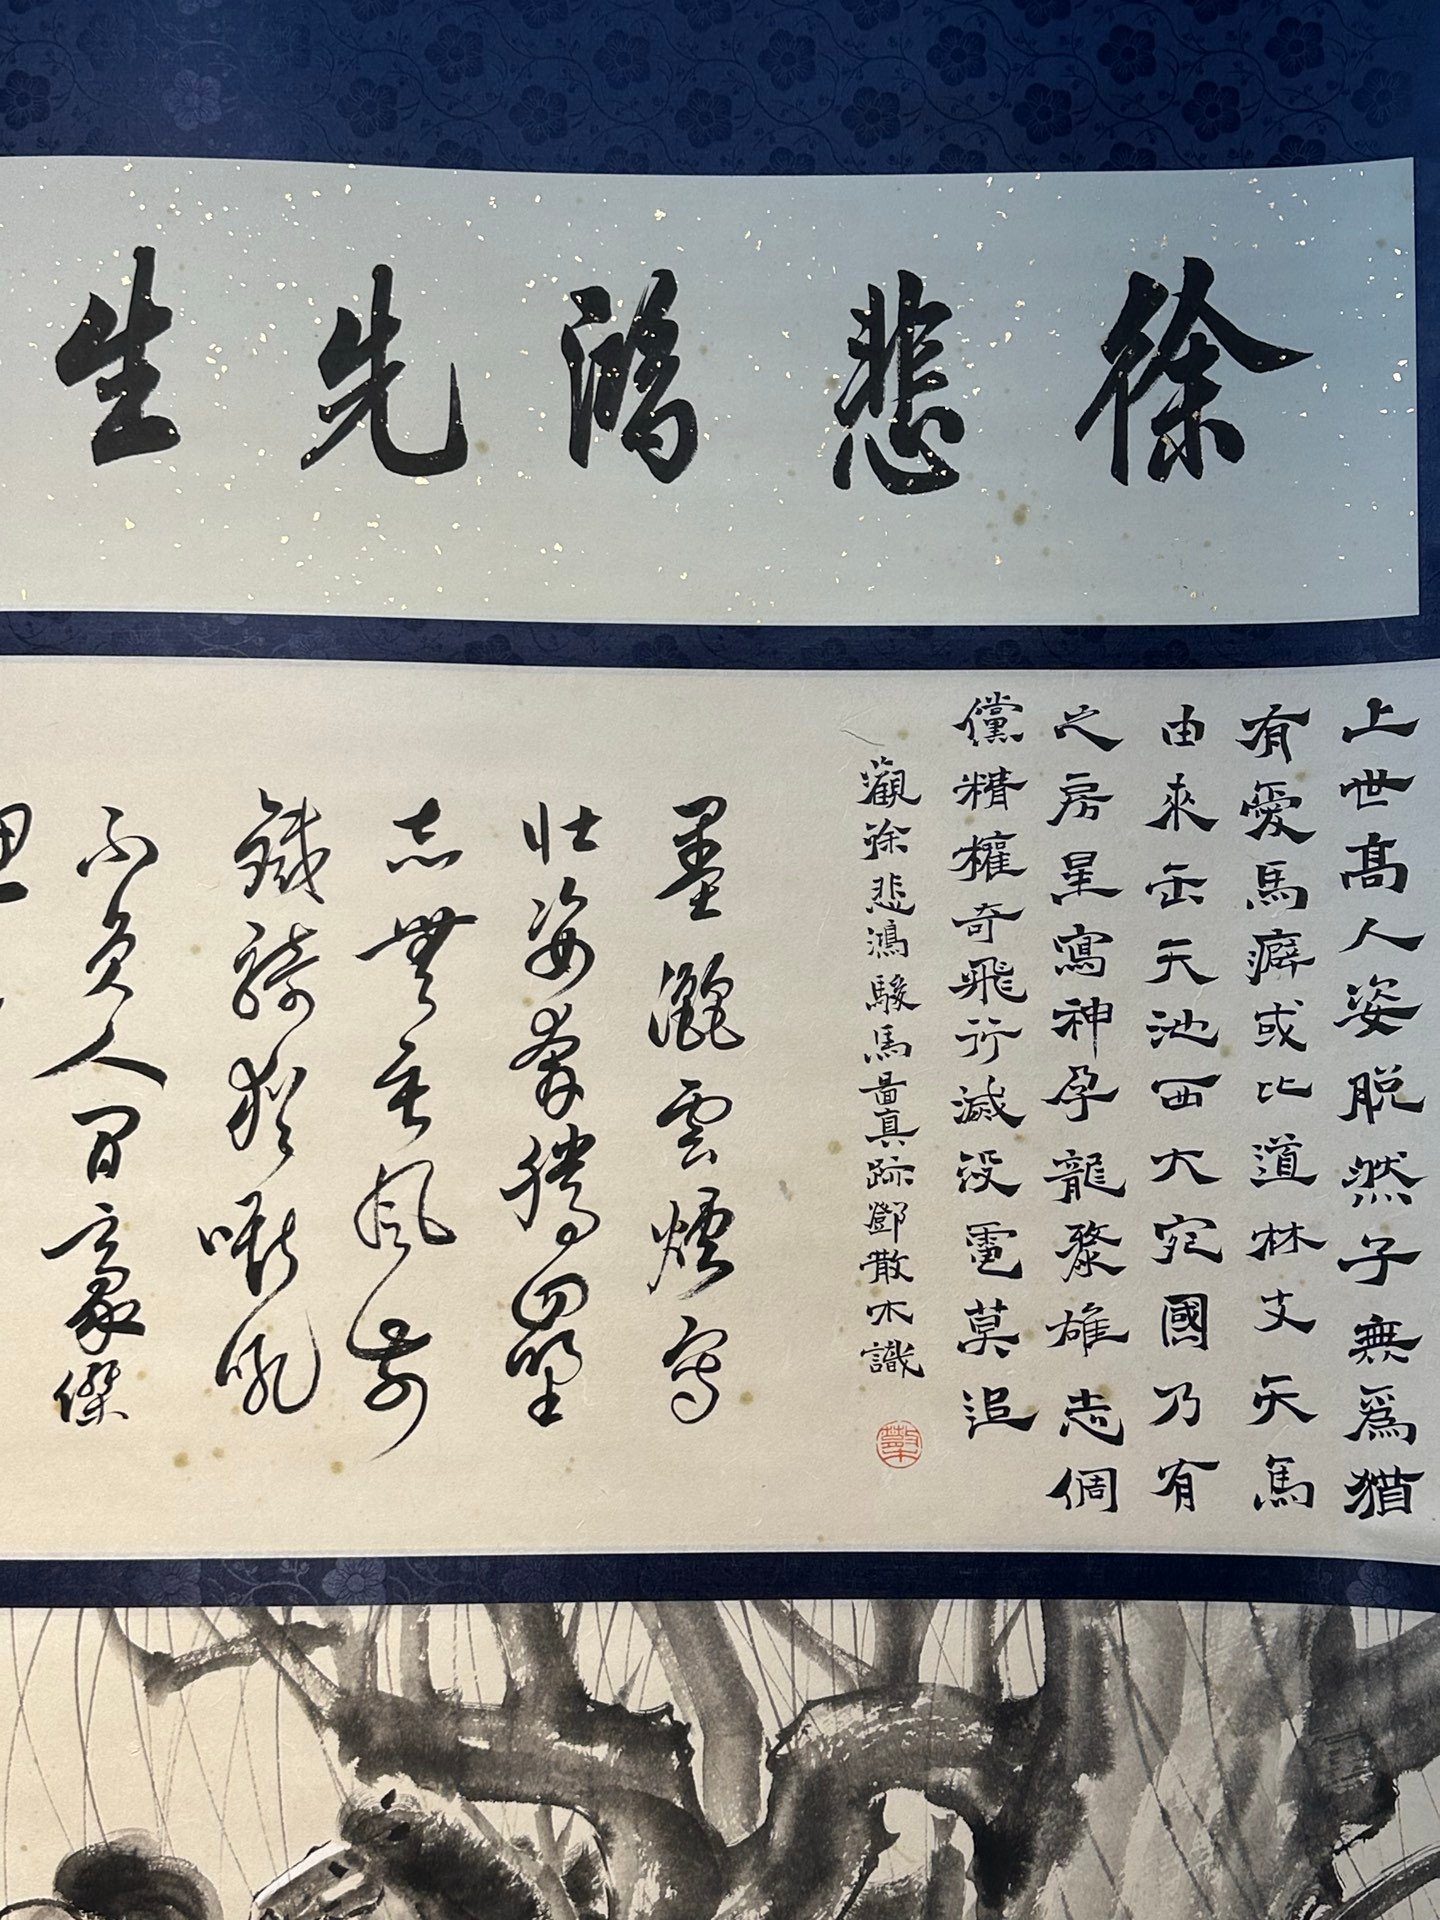 徐悲鴻先生
上世高人姿脱然子無爲猶
有愛馬癖或比道林支天馬
由來岳天池西大宛國乃有
之房星寫神孕龍黎雄志倜
儻精權奇飛行滅没電莫追
觀徐悲鴻駿馬啚真跡鄧散木識
墨灑雲煙寫
壯姿奔騰四野
志無垂風前
鐵騎猶嘶吼
不負人間豪傑